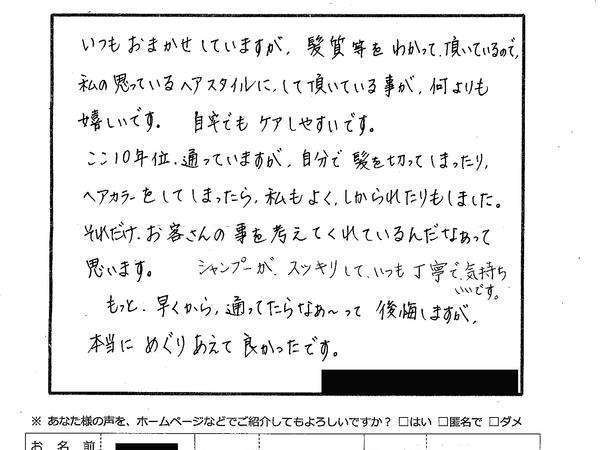 いつもおまかせしていますが、髪質等をわかって、頂いているので、
私の思っているヘアスタイルに、して頂いている事が、何よりも
嬉しいです。 自宅でも ケアしやすいです。
ここ10年位、通っていますが、自分で 髪を切ってしまったり、
ヘアカラーをしてしまったら、私もよく、しかられたりもしました。
それだけ、お客さんの事を考えてくれているんだなぁって
思います。 シャンプーが、スッキリして、いつも丁寧で、気持ち
いいです。
もっと、早くから、通ってたらなぁ〜って 後悔しますが、
本当に めぐりあえて 良かったです。
※ あなた様の声を、ホームページなどでご紹介してもよろしいですか? □はい □匿名で □ダメ
お 名 前